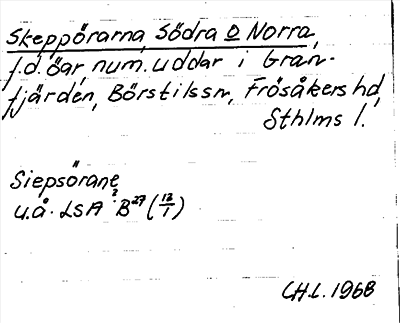 Skeppörarna, Södra o Norra,
f.d. öar, num. uddar i Gran-
fjärden, Börstilssn, Frösåkers hd,
Sthlms l.
Siepsörane
u.å. LSA B²⁷ (12/1)
CH.L. 1968